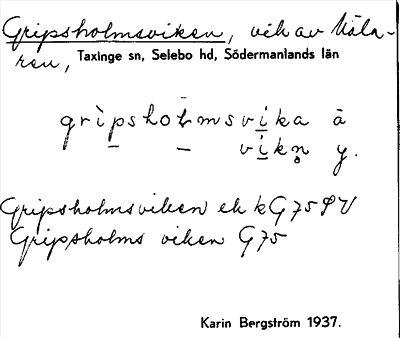 Gripsholmsviken, vik av Mäla-
ren, Taxinge sn, Selebo hd, Södermanlands län
grìpshoḷmsvika ä
vikn̥ y.
Gripsholmsviken ek k G 75
Gripsholms viken G 75
Karin Bergström 1937.